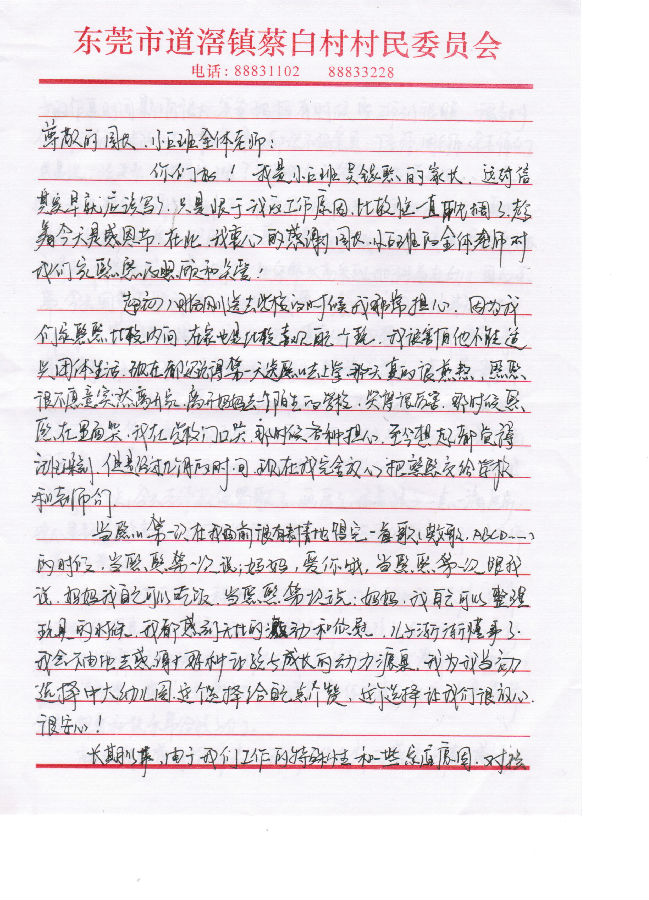 东莞市道滘镇蔡白村村民委员会
电话：88831102 88833228
尊敬的园长、小(三)班全体老师：
你们好！我是小 班吴 熙的家长，这封信
其实早就应该写了，只是限于我的工作原因，比较忙一直耽搁了，趁
着今天是感恩节，在此，我衷心的感谢园长、小 班的全体老师对
我们家熙熙的照顾和关爱！
起初，刚刚送去学校的时候我非常担心，因为我
们家熙熙比较内向，在家也是比较 ，我很害怕他不能适
应团体生活，现在都还记得第一天熙熙去上学那天真的很煎熬，熙熙
很不愿意突然离开家，离开妈妈去一个陌生的学校，哭得很厉害，那时候熙
熙在里面哭，我在学校门口哭，那时候各种担心，至今想起都觉得
，但是经过几个月的时间，现在我完全放心把熙熙交给学校
和老师们。
当熙熙第一次在我面前很有表情地唱完一首歌（数歌、ABCD……）
的时候，当熙熙第一次说：妈妈，爱你哦，当熙熙第一次跟我
说，妈妈我自己可以吃饭，当熙熙第一次说：妈妈，我自己可以整理
玩具的时候，我都感到无比的激动和欣慰，儿子渐渐懂事了。
我会不由地去感谢那种让孩子成长的动力源泉，我为我当初
选择中大幼儿园这个选择给自己点个赞，这个选择让我们很放心，
很安心！
长期以来，由于我们工作的特殊性和一些家庭原因，对孩